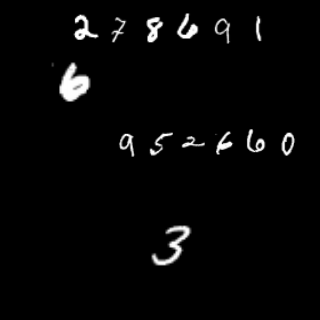 278691
6
952660
3